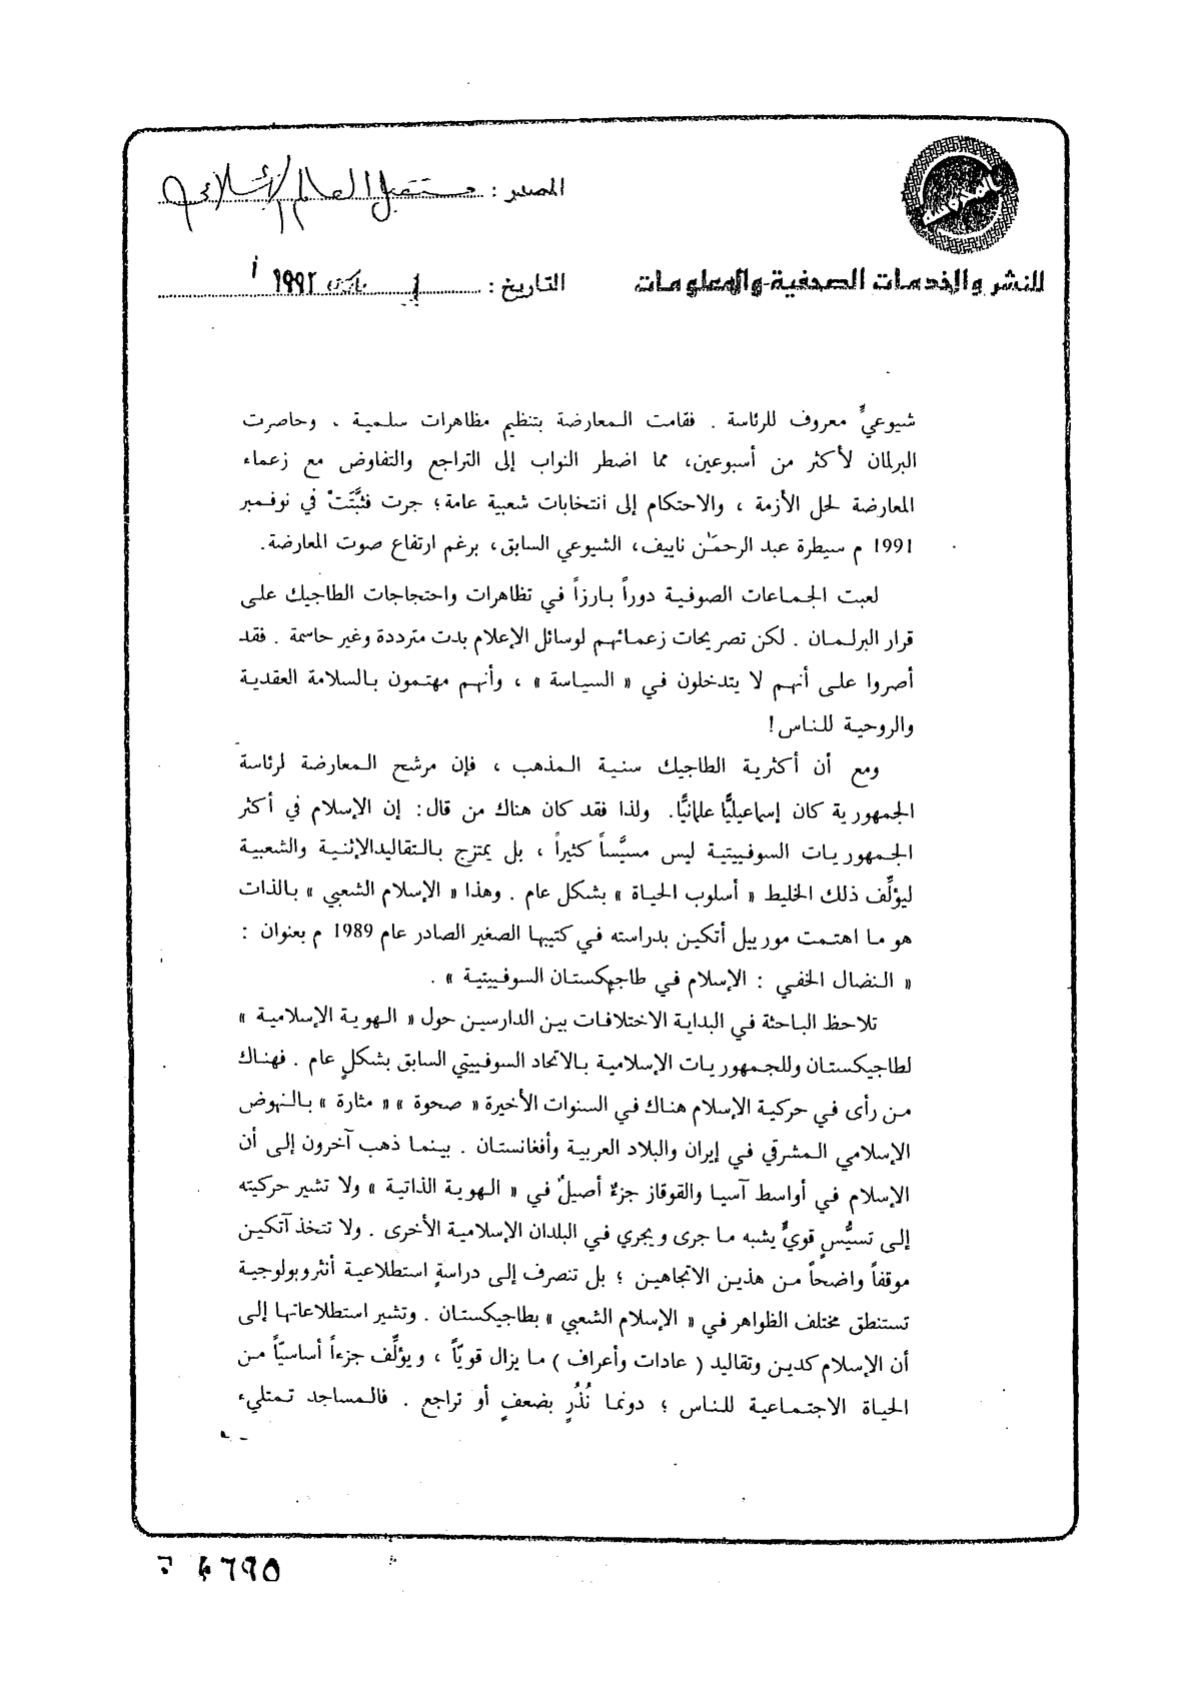 المصدر : مستقبل العالم الإسلامي
للنشر والخدمات الصحفية والمعلومات
التاريخ : ١ مارس ١٩٩٢
شيوعيٍّ معروف للرئاسة . فقامت المعارضة بتنظيم مظاهرات سلمية ، وحاصرت
البرلمان لأكثر من أسبوعين، مما اضطر النواب إلى التراجع والتفاوض مع زعماء
المعارضة لحل الأزمة ، والاحتكام إلى انتخابات شعبية عامة؛ جرت فثبَّتَتْ في نوفمبر
1991 م سيطرة عبد الرحمٰن نابيف، الشيوعي السابق، برغم ارتفاع صوت المعارضة.
لعبت الجماعات الصوفية دوراً بارزاً في تظاهرات واحتجاجات الطاجيك على
قرار البرلمان . لكن تصريحات زعمائهم لوسائل الإعلام بدت مترددة وغير حاسمة . فقد
أصروا على أنهم لا يتدخلون في « السياسة » ، وأنهم مهتمون بالسلامة العقدية
والروحية للناس!
ومع أن أكثرية الطاجيك سنية المذهب ، فإن مرشح المعارضة لرئاسة
الجمهورية كان إسماعيليًّا علمانيًّا. ولذا فقد كان هناك من قال: إن الإسلام في أكثر
الجمهوريات السوفييتية ليس مسيَّساً كثيراً ، بل يمتزج بالتقاليدالإثنية والشعبية
ليؤلِّف ذلك الخليط « أسلوب الحياة » بشكل عام . وهذا « الإسلام الشعبي » بالذات
هو ما اهتمت مورييل أتكين بدراسته في كتيبها الصغير الصادر عام 1989 م بعنوان :
« النضال الخفي : الإسلام في طاجيكستان السوفييتية » .
تلاحظ الباحثة في البداية الاختلافات بين الدارسين حول « الهوية الإسلامية »
لطاجيكستان وللجمهوريات الإسلامية بالاتحاد السوفييتي السابق بشكلٍ عام . فهناك
من رأى في حركية الإسلام هناك في السنوات الأخيرة « صحوة » « مثارة » بالنهوض
الإسلامي المشرقي في إيران والبلاد العربية وأفغانستان . بينما ذهب آخرون إلى أن
الإسلام في أواسط آسيا والقوقاز جزءٌ أصيلٌ في « الهوية الذاتية » ولا تشير حركيته
إلى تسيُّسٍ قويٍّ يشبه ما جرى ويجري في البلدان الإسلامية الأخرى . ولا تتخذ آتكين
موقفاً واضحاً من هذين الاتجاهين ؛ بل تنصرف إلى دراسةٍ استطلاعية أنثروبولوجية
تستنطق مختلف الظواهر في « الإسلام الشعبي » بطاجيكستان . وتشير استطلاعاتها إلى
أن الإسلام كدين وتقاليد ( عادات وأعراف ) ما يزال قويّاً ، ويؤلِّف جزءاً أساسيّاً من
الحياة الاجتماعية للناس ؛ دونما نُذُرٍ بضعفٍ أو تراجع . فالمساجد تمتليء